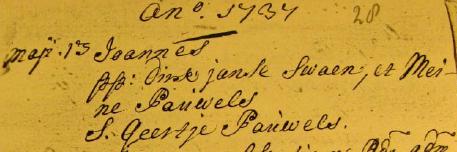 Anº. 1737 28
maji. 13 Joannes
pp: Dirk janse Swaen, et Mei-
ne Pauwels
S. Geertje Pauwels.